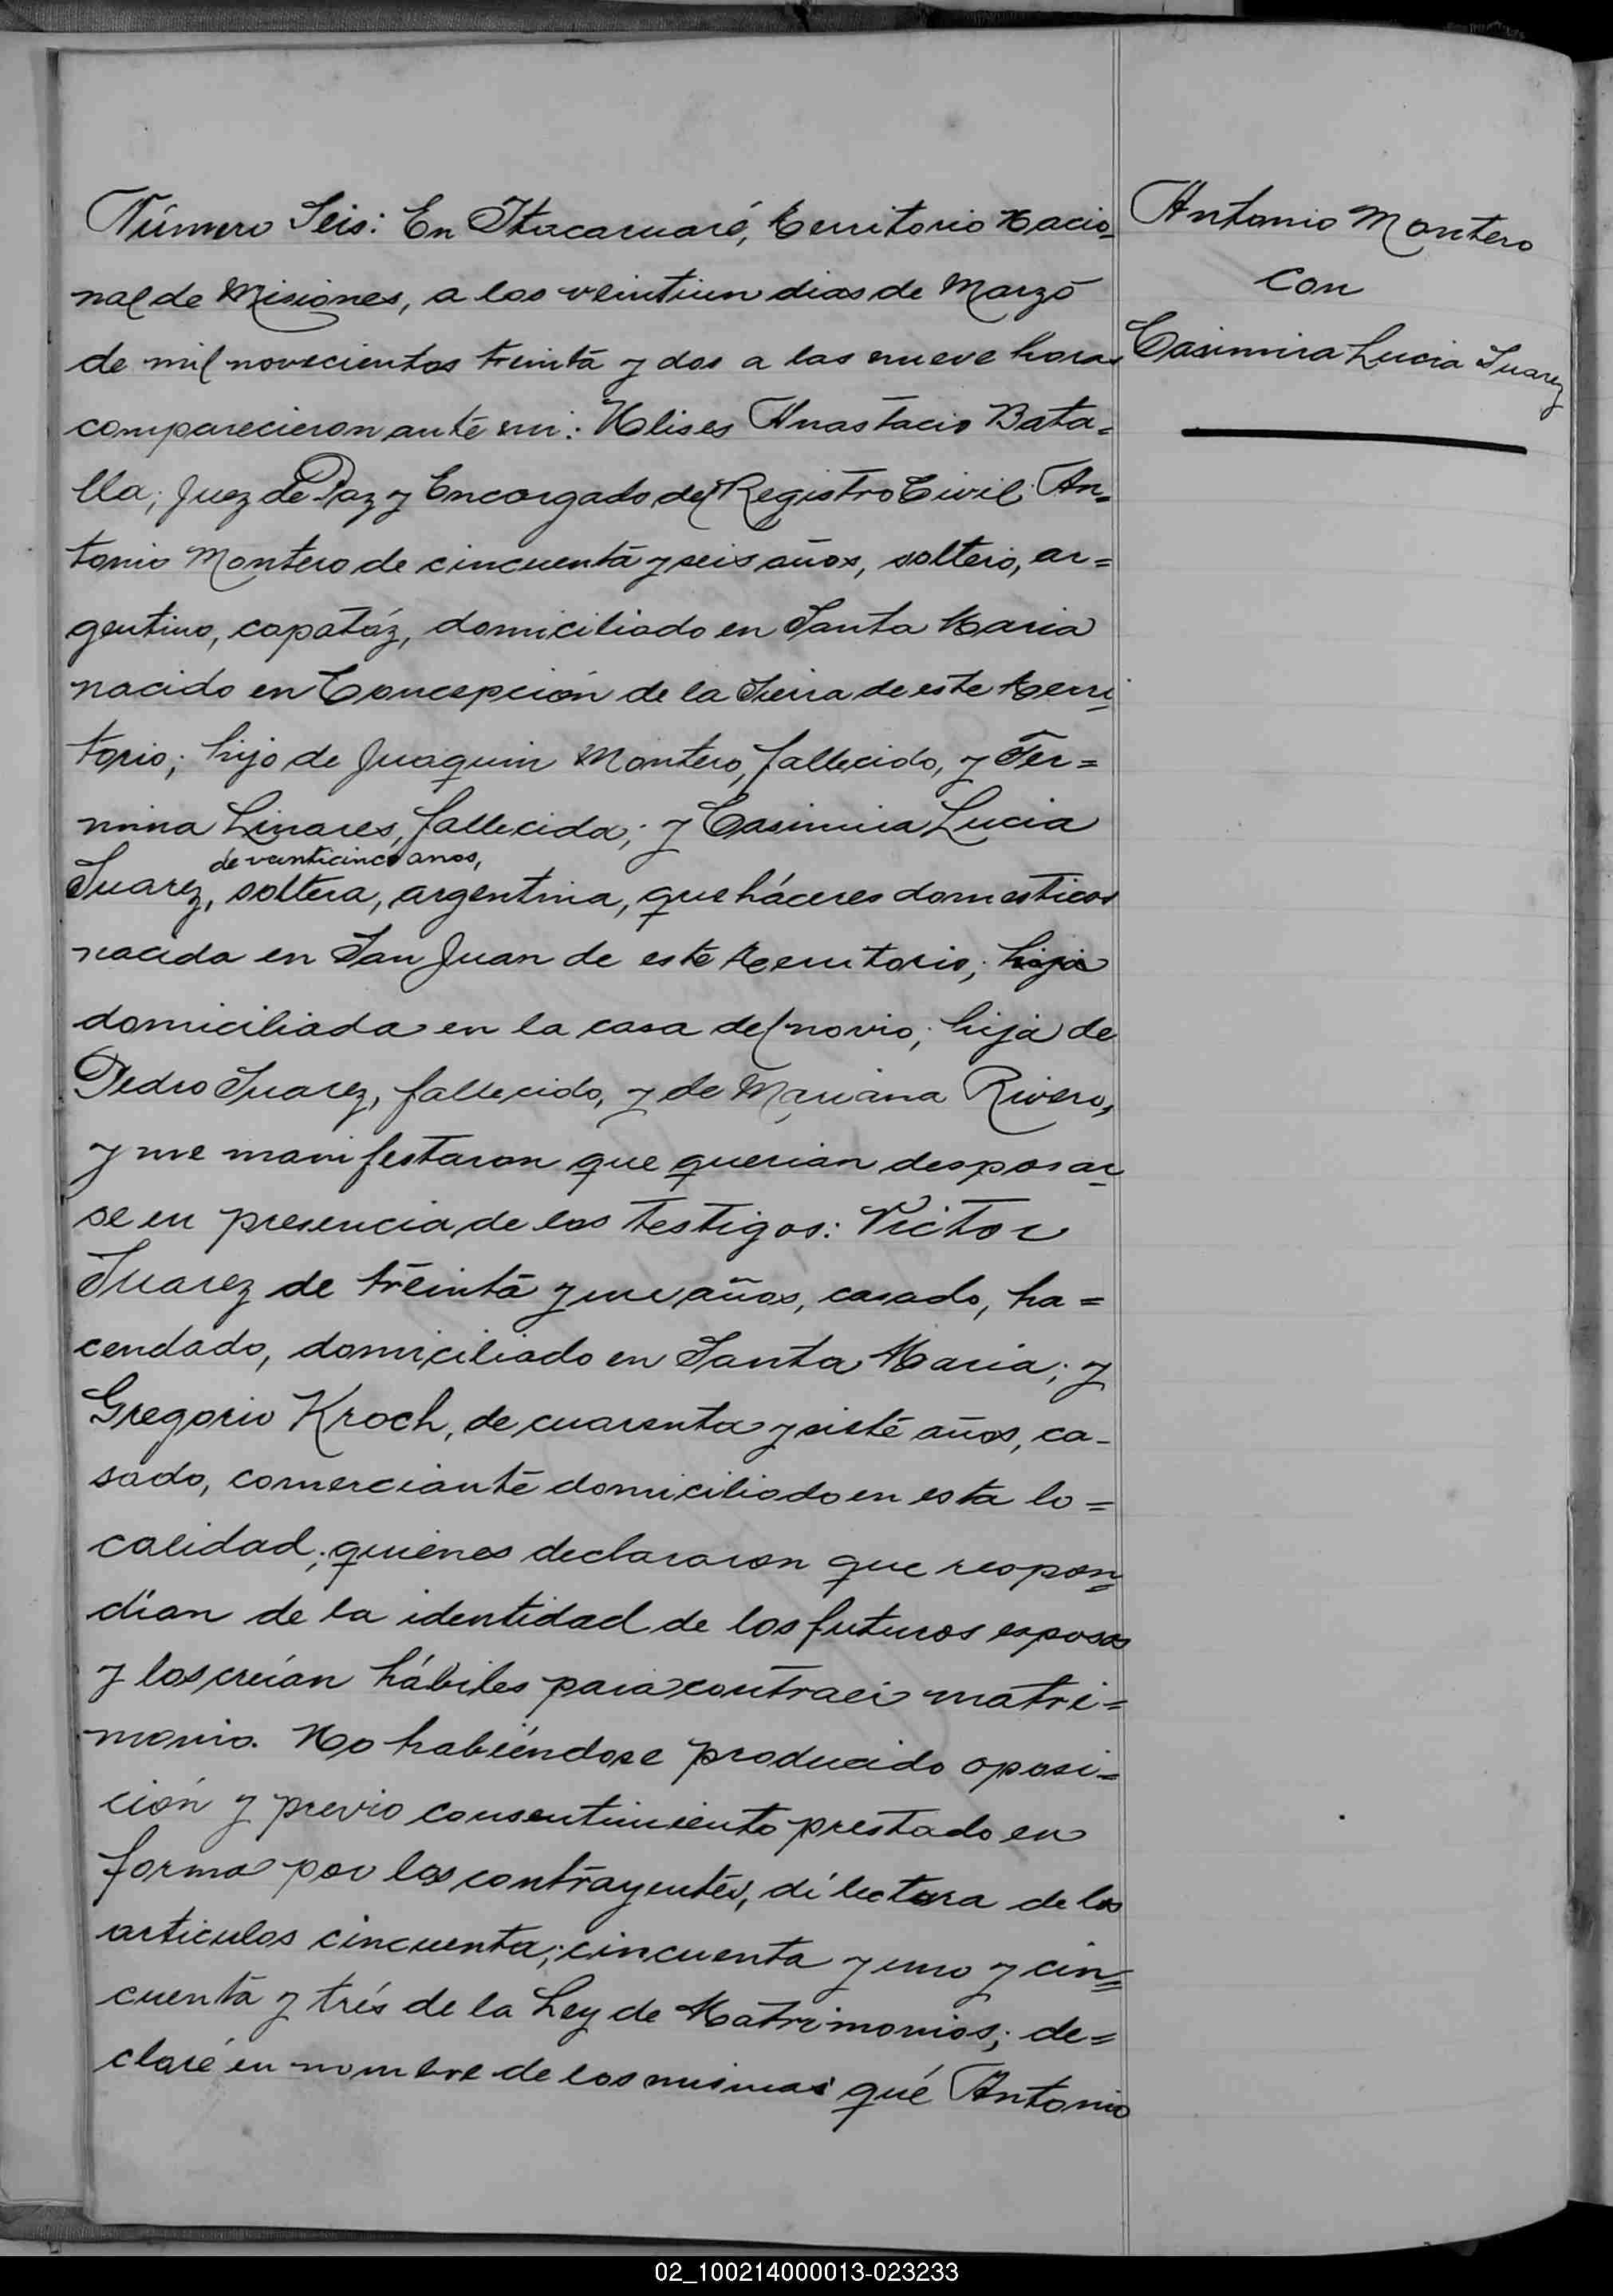 Número Seis: En Itacaruaré, territorio Nacio-
nal de Misiones, a los veintiun dias de Marzo
de mil novecientos treinta y dos a las nueve horas
comparecieron ante mi: Ulises Anastacio Bata=
lla, Juez de Paz y Encargado del Registro Civil: An=
tonio Montero de cincuenta y seis años, soltero, ar=
gentino, capatáz, domiciliado en Santa Maria
nacido en Concepción de la Sierra de este terri-
torio; hijo de Juaquin Montero, fallecido, y Fer=
mina Linares, fallecida; y Casimira Lucia
de veinticinco anos,
Suarez, soltera, argentina, que háceres domesticos
nacida en San Juan de este territorio; hija
domiciliada en la casa del novio; hija de
Pedro Suarez, fallecido, y de Mariana Rivero,
y me manifestaron que querian desposar-
se en presencia de los testigos: Victor
Suarez de treinta y un años, casado, ha=
cendado, domiciliado en Santa Maria; y
Gregorio Kroch, de cuarenta y siete años, ca-
sado, comerciante domiciliado en esta lo=
calidad; quienes declararon que respon=
dían de la identidad de los futuros esposos
y los creían hábiles para contraer matri=
monio. No habiéndose producido oposi=
ción y previo consentimiento prestado en
forma por los contrayentes, dí lectura de los
articulos cincuenta; cincuenta y uno y cin=
cuenta y trés de la Ley de Matrimonios; de=
claré en nombre de los mismas qué Antonio
Antonio Montero
con
Casimira Lucia Suarez
02_100214000013-023233